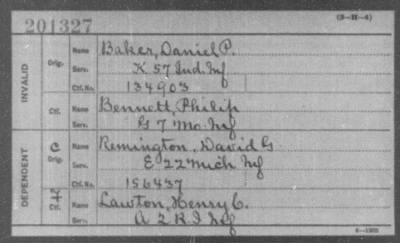 201327
(3-H-4)
INVALID
Orig.
Name Baker, Daniel P.
Serv. K 57 Ind. Inf
Ctf. No. 134903
Ctf.
Name Bennett, Philip
Serv. G 7 Mo. Inf
DEPENDENT
C
Orig.
Name Remington, David G
Serv. E 22 Mich Inf
Ctf. No. 156437
Ctf.
Name Lawton, Henry C.
Serv. A 2 R I Inf